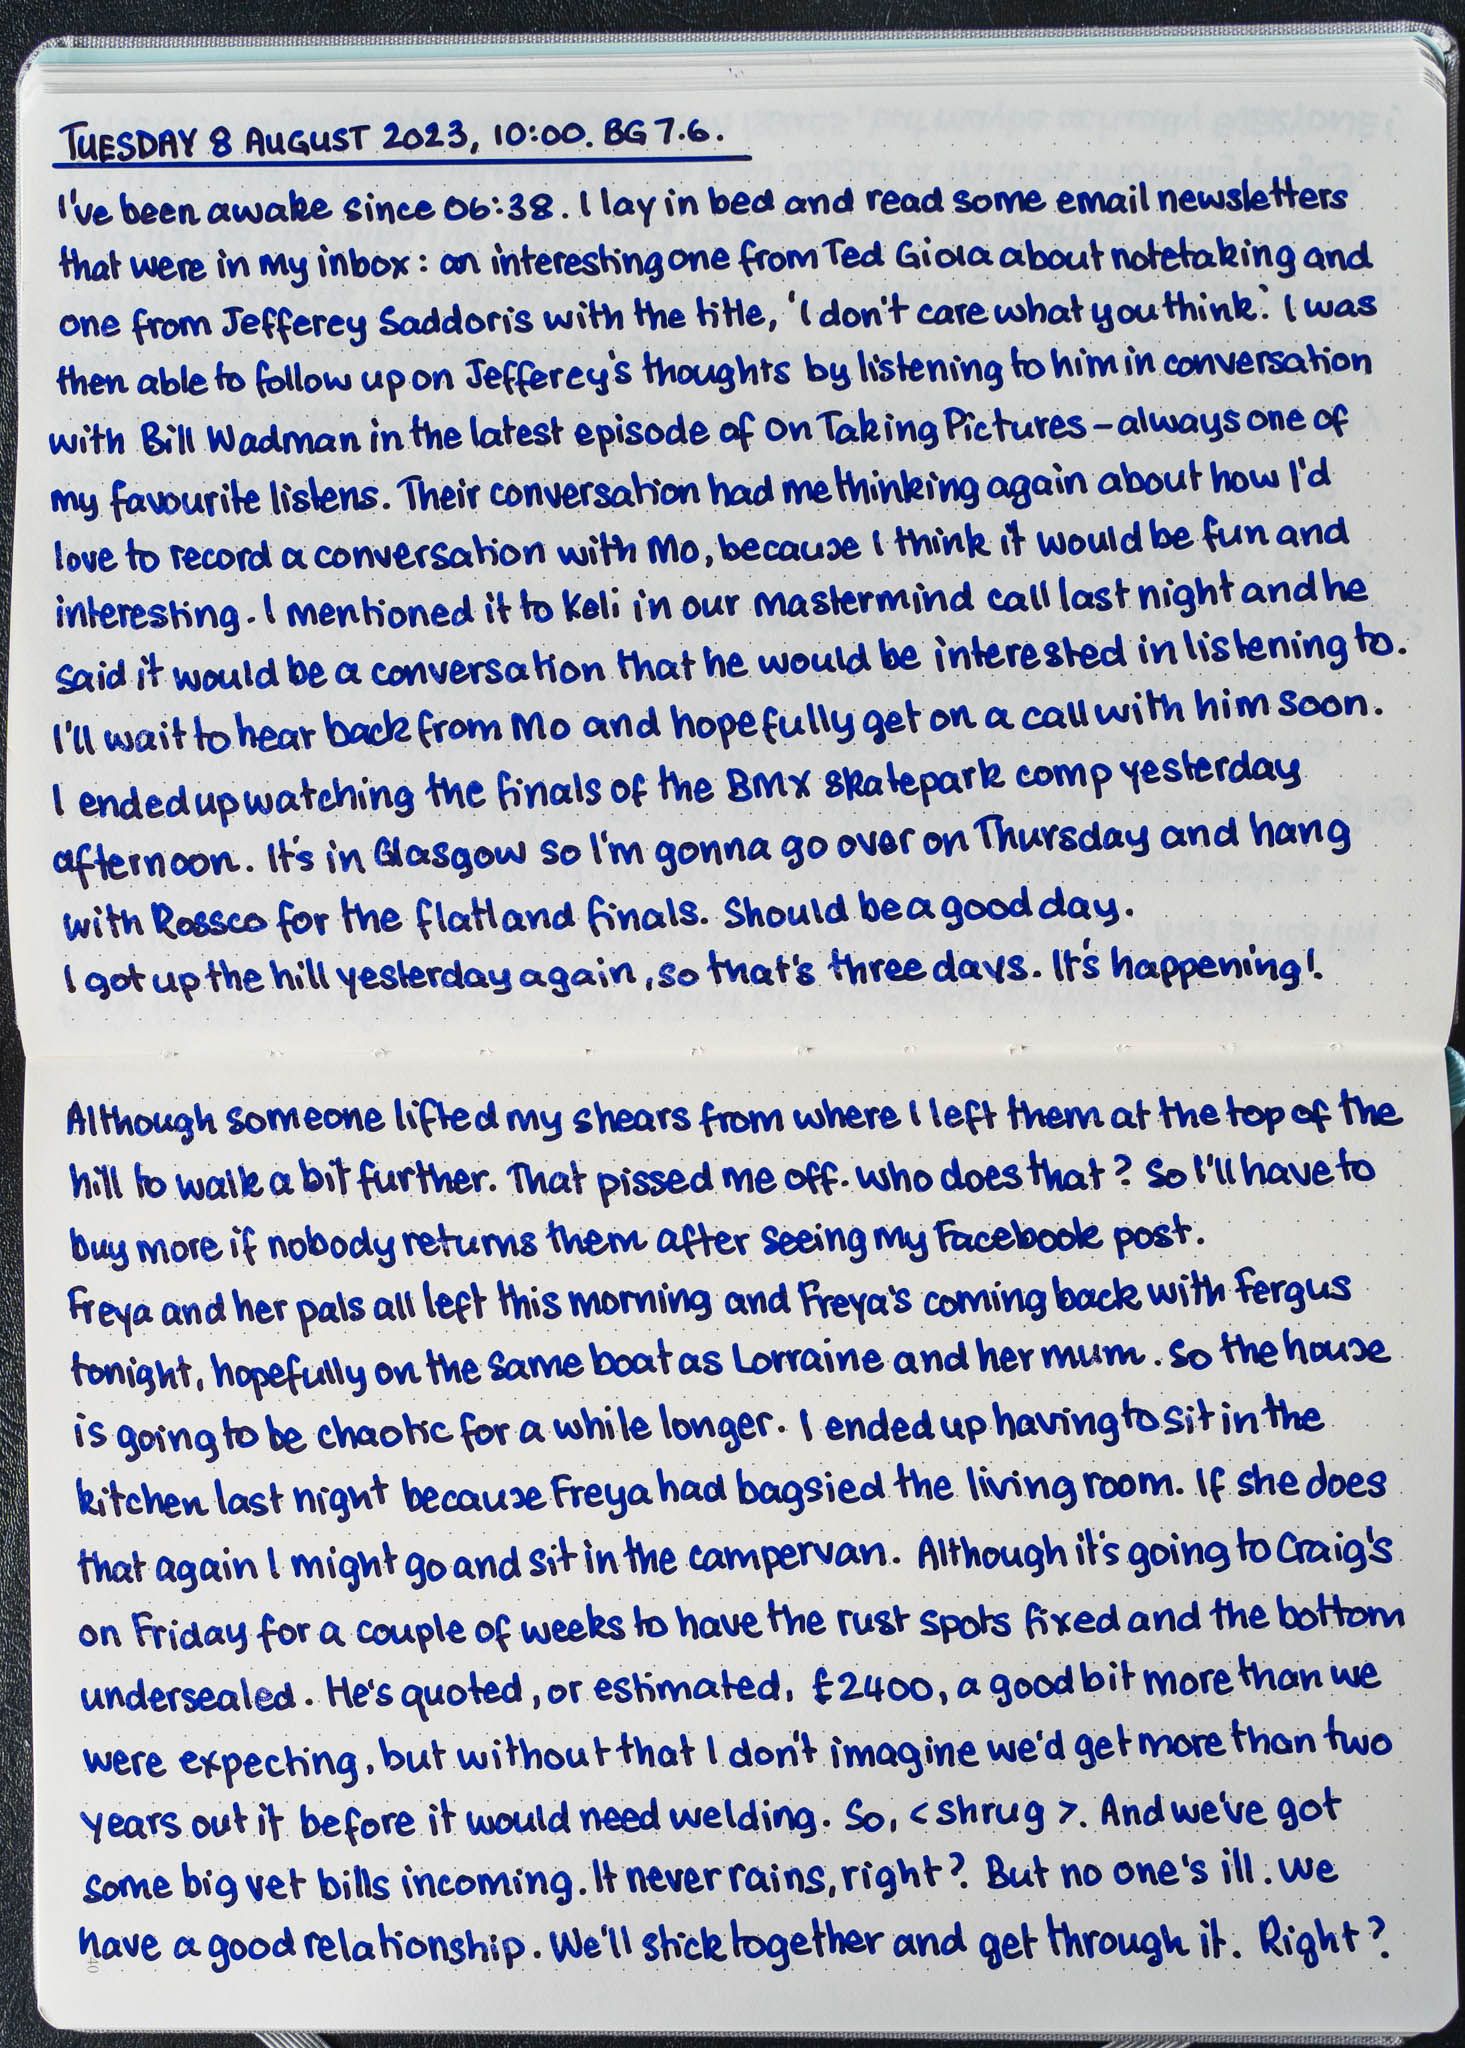 TUESDAY 8 AUGUST 2023, 10:00. BG 7.6.
I've been awake since 06:38. I lay in bed and read some email newsletters
that were in my inbox: an interesting one from Ted Gioia about notetaking and
one from Jefferey Saddoris with the title, 'I don't care what you think.' I was
then able to follow up on Jefferey's thoughts by listening to him in conversation
with Bill Wadman in the latest episode of On Taking Pictures – always one of
my favourite listens. Their conversation had me thinking again about how I'd
love to record a conversation with Mo, because I think it would be fun and
interesting. I mentioned it to Keli in our mastermind call last night and he
said it would be a conversation that he would be interested in listening to.
I'll wait to hear back from Mo and hopefully get on a call with him soon.
I ended up watching the finals of the BMX skatepark comp yesterday
afternoon. It's in Glasgow so I'm gonna go over on Thursday and hang
with Rossco for the flatland finals. Should be a good day.
I got up the hill yesterday again, so that's three days. It's happening!
Although someone lifted my shears from where I left them at the top of the
hill to walk a bit further. That pissed me off. Who does that? So I'll have to
buy more if nobody returns them after seeing my Facebook post.
Freya and her pals all left this morning and Freya's coming back with Fergus
tonight, hopefully on the same boat as Lorraine and her mum. So the house
is going to be chaotic for a while longer. I ended up having to sit in the
kitchen last night because Freya had bagsied the living room. If she does
that again I might go and sit in the campervan. Although it's going to Craig's
on Friday for a couple of weeks to have the rust spots fixed and the bottom
undersealed. He's quoted, or estimated, £2400, a good bit more than we
were expecting, but without that I don't imagine we'd get more than two
years out it before it would need welding. So, <shrug>. And we've got
some big vet bills incoming. It never rains, right? But no one's ill. We
have a good relationship. We'll stick together and get through it. Right?
40